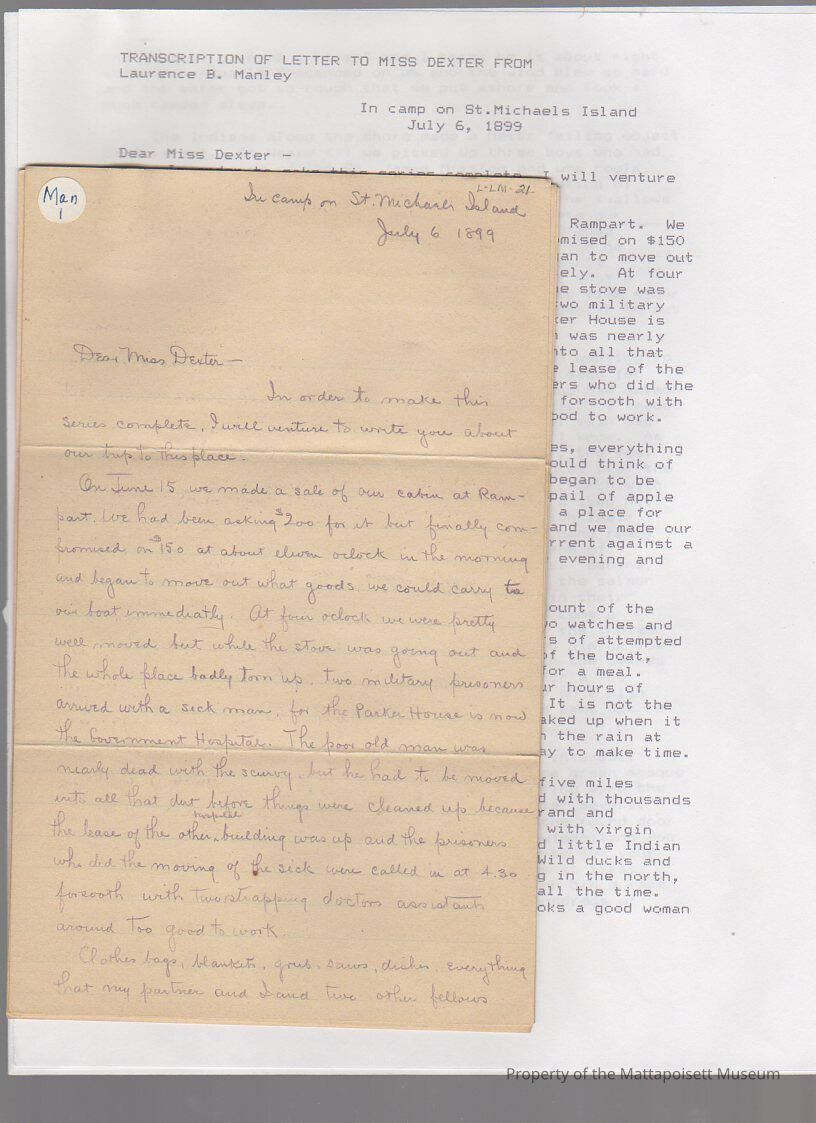 TRANSCRIPTION OF LETTER TO MISS DEXTER FROM
Laurence B. Manley
In camp on St.Michaels Island
July 6, 1899
Dear Miss Dexter -
I will venture
Rampart. We
omised on $150
an to move out
ely. At four
e stove was
wo military
ker House is
was nearly
nto all that
e lease of the
ers who did the
forsooth with
ood to work.
es, everything
ould think of
began to be
pail of apple
a place for
and we made our
rrent against a
evening and
ount of the
wo watches and
s of attempted
of the boat,
for a meal.
ur hours of
It is not the
aked up when it
n the rain at
ay to make time.
five miles
d with thousands
rand and
with virgin
d little Indian
Wild ducks and
g in the north,
all the time.
oks a good woman
Man
1
L-LM-21
In camp on St. Michaels Island
July 6 1899
Dear Miss Dexter—
In order to make this
series complete, I will venture to write you about
our trip to this place.
On June 15 we made a sale of our cabin at Ram-
part. We had been asking $200 for it but finally com-
promised on $150 at about eleven oclock in the morning
and began to move out what goods we could carry to
our boat immediatly. At four oclock we were pretty
well moved but while the stove was going out and
the whole place badly torn up, two military prisoners
arrived with a sick man, for the Parker House is now
the Government Hospital. The poor old man was
nearly dead with the scurvy, but he had to be moved
into all that dirt before things were cleaned up because
the lease of the other hospital building was up and the prisoners
who did the moving of the sick were called in at 4.30
forsooth with two strapping doctors assistants
around too good to work.
Clothes bags, blankets, grub, saws, dishes, everything
that my partner and I and two other fellows
Property of the Mattapoisett Museum